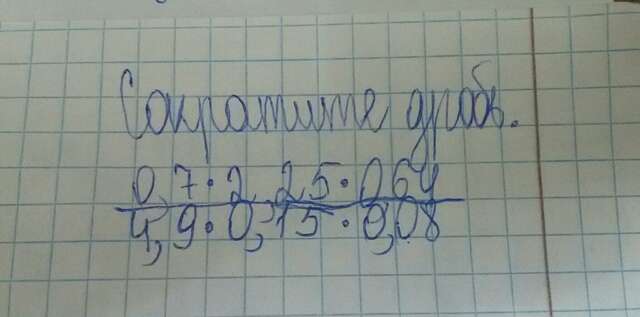 Сократите дробь.
0,7·2,25·0,64
4,9·0,15·0,08